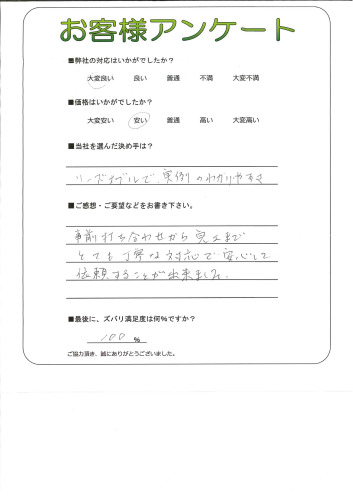 お客様アンケート
■弊社の対応はいかがでしたか？
大変良い 良い 普通 不満 大変不満
■価格はいかがでしたか？
大変安い 安い 普通 高い 大変高い
■当社を選んだ決め手は？
リーズナブルで、実例のわかりやすさ
■ご感想・ご要望などをお書き下さい。
事前打ち合わせから完工まで
とても丁寧な対応で安心して
依頼することが出来ました。
■最後に、ズバリ満足度は何%ですか？
100 %
ご協力頂き、誠にありがとうございました。